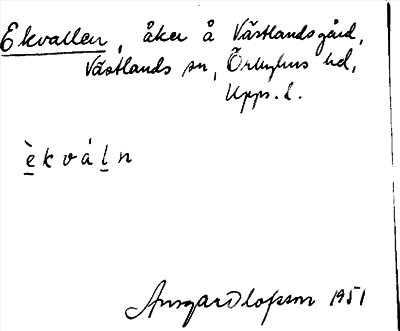 Ekvallen, åker å Västlandsgård,
Västlands sn, Örbyhus hd,
Upps. l.
è̲ k v á l̲ n
Ansgar Olofsson 1951